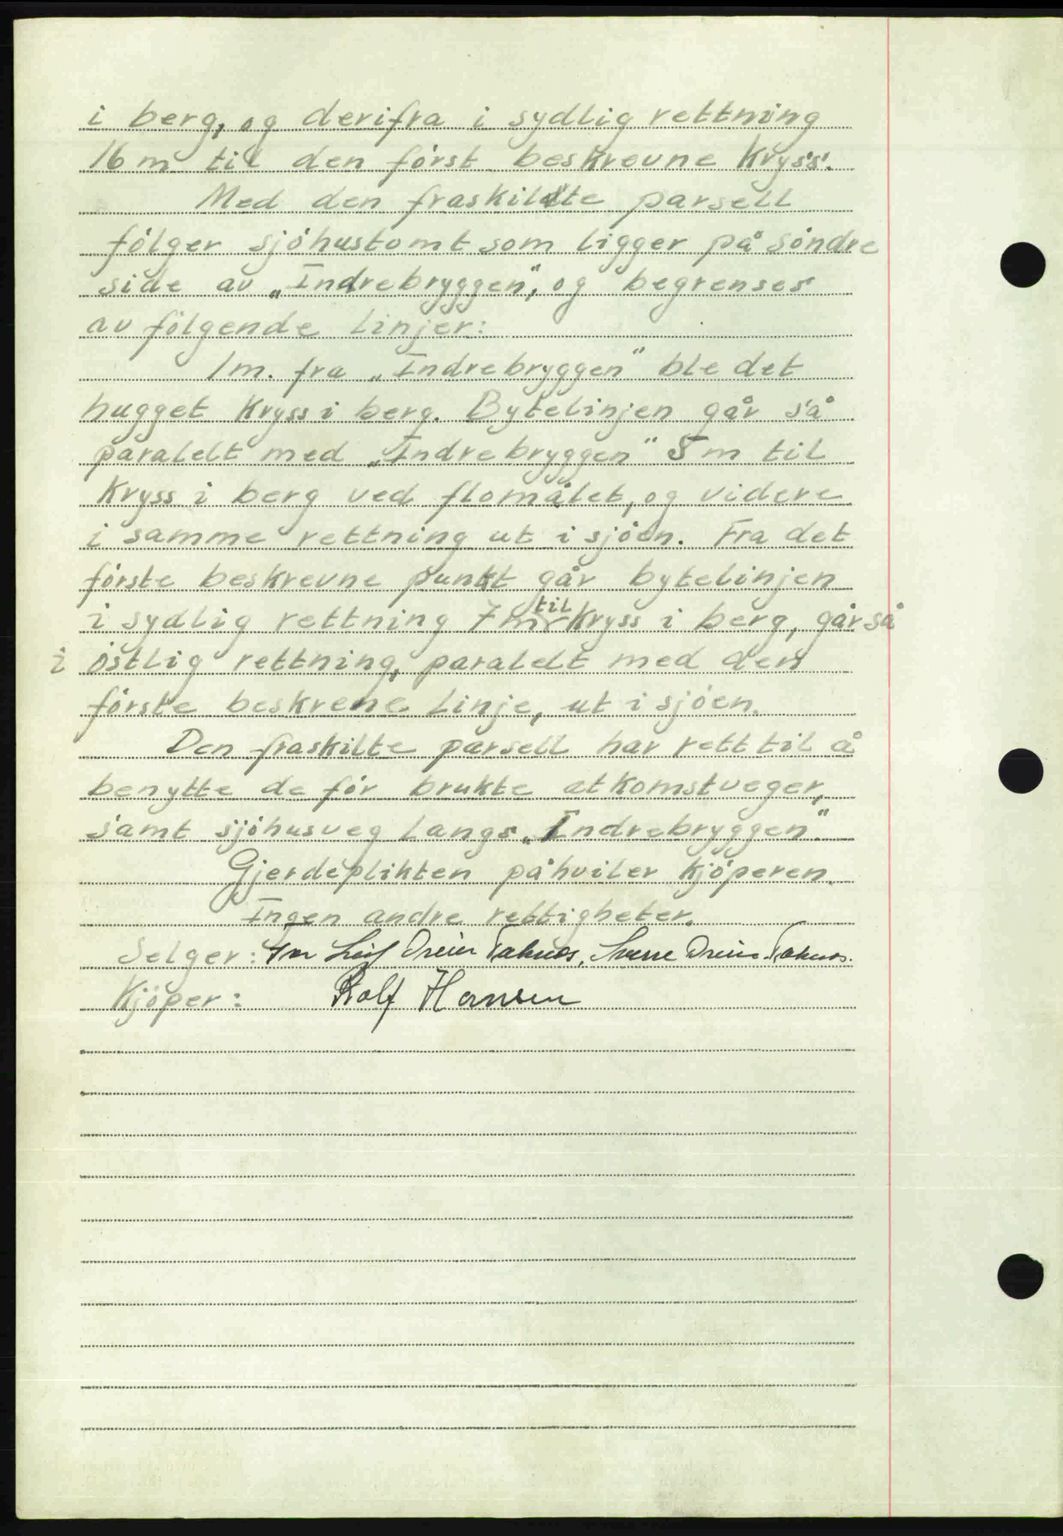 i berg, og derifra i sydlig rettning
16 m til den först beskrevne kryss.
Med den fraskildte parsell
fölger sjöhustomt som ligger på söndre
side av „Indrebryggen“, og begrenses
av fölgende linjer:
1m. fra „Indrebryggen“ ble det
hugget kryss i berg. Bytelinjen går så
paralelt med „Indrebryggen“ 5 m til
kryss i berg ved flomålet, og videre
i samme rettning ut i sjöen. Fra det
förste beskrevne punkt går bytelinjen
i sydlig rettning 7 m til kryss i berg, går så
i östlig rettning, paralelt med den
förste beskrene linje, ut i sjöen.
Den fraskilte parsell har rett til å
benytte de för brukte atkomstveger,
samt sjöhusveg langs „Indrebryggen“
Gjerdeplikten påhviler kjöperen.
Ingen andre rettigheter.
Selger: Leif Dreier Taknes, Sverre Dreier Taknes.
Kjöper: Rolf Hansen